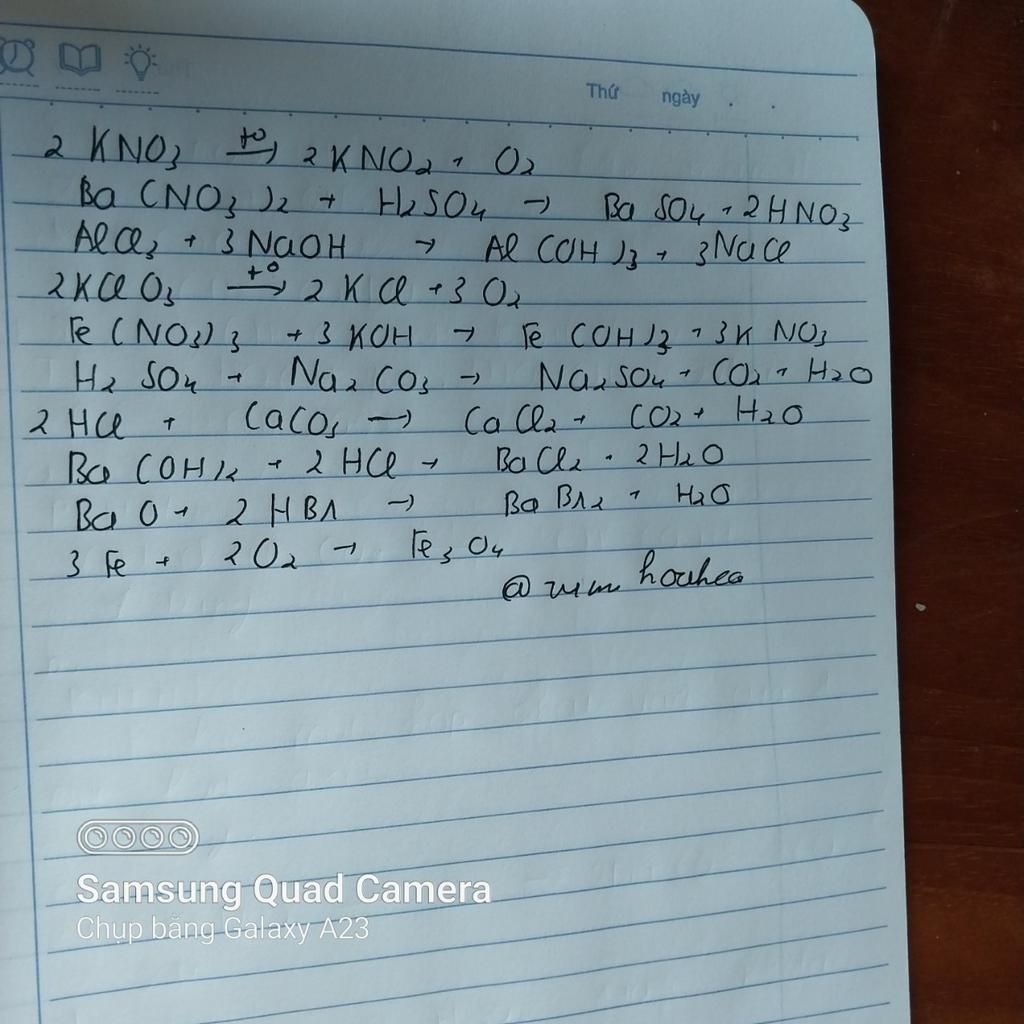 Thứ ngày . .
2 KNO₃ →(t⁰) 2KNO₂ + O₂
Ba(NO₃)₂ + H₂SO₄ → BaSO₄ + 2HNO₃
AlCl₃ + 3NaOH → Al(OH)₃ + 3NaCl
2KClO₃ →(t⁰) 2KCl + 3O₂
Fe(NO₃)₃ + 3KOH → Fe(OH)₃ + 3KNO₃
H₂SO₄ + Na₂CO₃ → Na₂SO₄ + CO₂ + H₂O
2HCl + CaCO₃ → CaCl₂ + CO₂ + H₂O
Ba(OH)₂ + 2HCl → BaCl₂ + 2H₂O
BaO + 2HBr → BaBr₂ + H₂O
3Fe + 2O₂ → Fe₃O₄
@
Samsung Quad Camera
Chụp bằng Galaxy A23